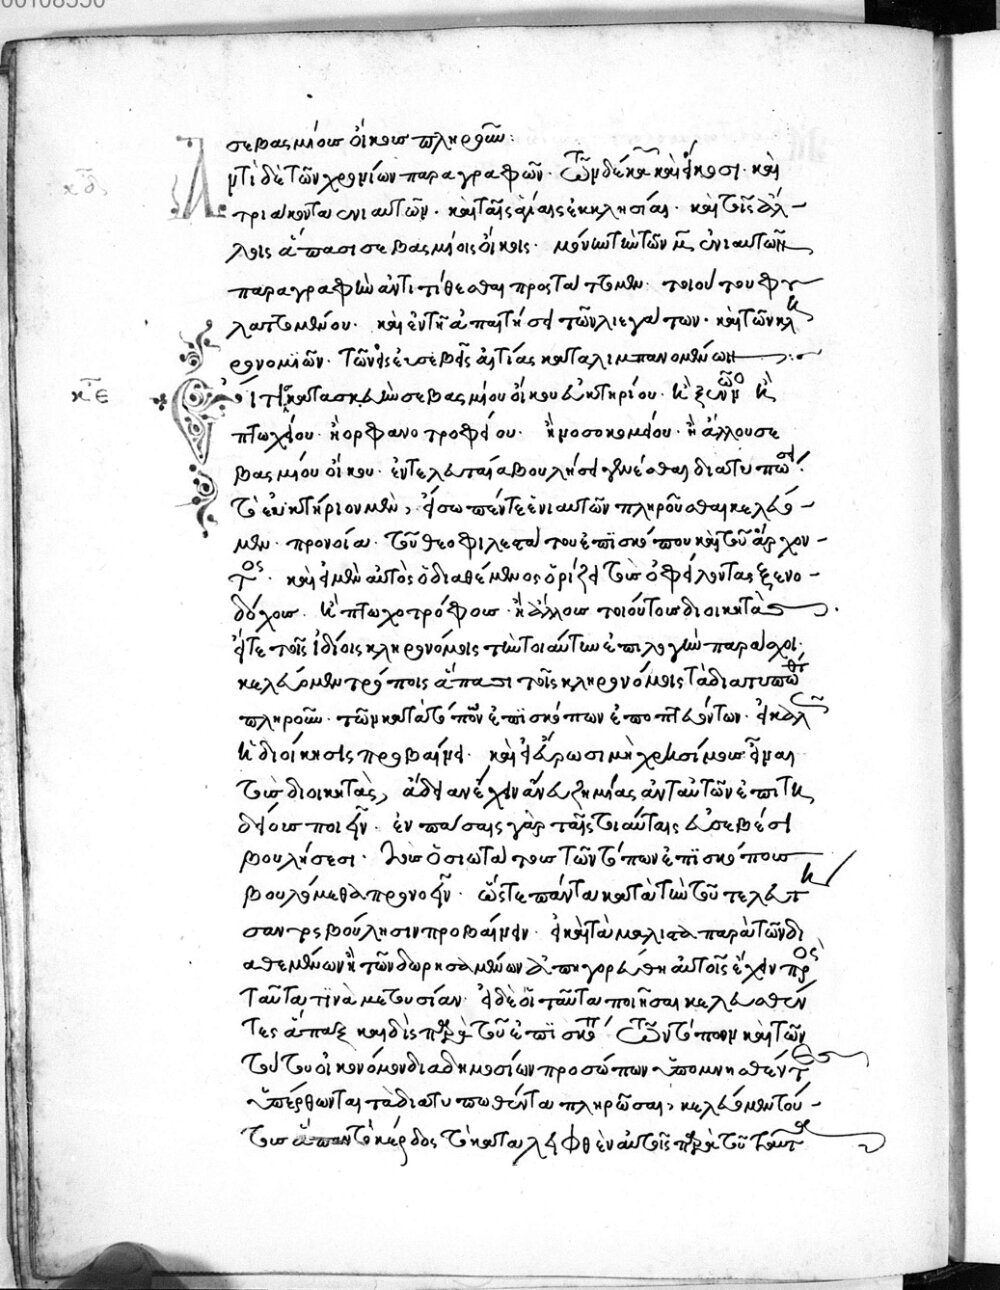 00108550
σεβασμίους οἴκους πληροῦν:
κδ
Ἀντὶ δὲ τῶν χρονίων παραγραφῶν. τῶν δέκα καὶ εἴκοσι. καὶ
τριάκοντα ἐνιαυτῶν. καὶ ταῖς ἁγίαις ἐκκλησίαις. καὶ τοῖς ἄλ-
λοις ἅπασι σεβασμίοις οἴκοις. μόνην τὴν τῶν μ ἐνιαυτῶν
παραγραφὴν ἀντιτίθεσθαι προστάττομεν. τοιούτου φυ
λαττομένου. καὶ ἐν τῇ ἀπαιτήσει τῶν λεγάτων. καὶ τῶν κλη
ρονομιῶν. τῶν εἰς εὐσεβεῖς αἰτίας καταλιμπανομένων
κε
Εἴ τις κατασκευὴν σεβασμίου οἴκου εὐκτηρίου. ἢ ξενῶνος ἢ
πτωχείου. ἢ ὀρφανοτροφείου. ἢ νοσοκομείου. ἢ ἄλλου σε
βασμίου οἴκου. ἐν τελευταίᾳ βουλήσει γενέσθαι διατυπώσει
τὸ εὐκτήριον μὲν, εἴσω πέντε ἐνιαυτῶν πληροῦσθαι κελεύο-
μεν. προνοίᾳ. τοῦ θεοφιλεστάτου ἐπισκόπου καὶ τοῦ ἄρχον-
τος. καὶ εἰ μὲν αὐτὸς ὁ διαθέμενος ὁρίζει τοὺς ὀφείλοντας ξενο-
δόχους. ἢ πτωχοτρόφους. ἢ ἄλλους τοιούτους διοικητὰς
εἴτε τοῖς ἰδίοις κληρονόμοις τὴν τοιαύτην ἐπιλογὴν παράσχοι.
κελεύομεν τρόποις ἅπασι τοῖς κληρονόμοις τὰ διατυπωθέντα
πληροῦν. τῶν κατὰ τόπον ἐπισκόπων ἐποπτευόντων. εἰ καλῶς
ἡ διοίκησις προβαίνει. καὶ εἰ εὕρωσι μὴ χρησίμους εἶναι
τοὺς διοικητὰς, ἄδειαν ἔχειν ἄνευ ζημίας ἀντ αὐτῶν ἐπιτη
δείους ποιεῖν. ἐν πάσαις γὰρ ταῖς τοιαύταις εὐσεβέσι
βουλήσεσι. τοὺς ὁσιωτάτους τῶν τόπων ἐπισκόπους
βουλόμεθα προνοεῖν. ὥστε πάντα κατὰ τὴν τοῦ τελευτή
σαντος βούλησιν προβαίνειν. εἰ καὶ τὰ μάλιστα παρὰ τῶν δι
αθεμένων ἢ τῶν δωρησαμένων ἀπηγορεύθη αὐτοῖς ἔχειν πρὸς
ταῦτα τινὰ μετουσίαν. εἰ δὲ οἱ ταῦτα ποιῆσαι κελευσθέν
τες ἅπαξ καὶ δὶς παρὰ τοῦ ἐπισκόπου τῶν τόπων καὶ τῶν
τούτου οἰκονόμων διὰ δημοσίων προσώπων ὑπομνησθέντες
ὑπέρθωνται τὰ διατυπωθέντα πληρῶσαι, κελεύομεν τού-
τους ἅπαν τὸ κέρδος τὸ καταλειφθὲν αὐτοῖς παρὰ τοῦ ταῦτα